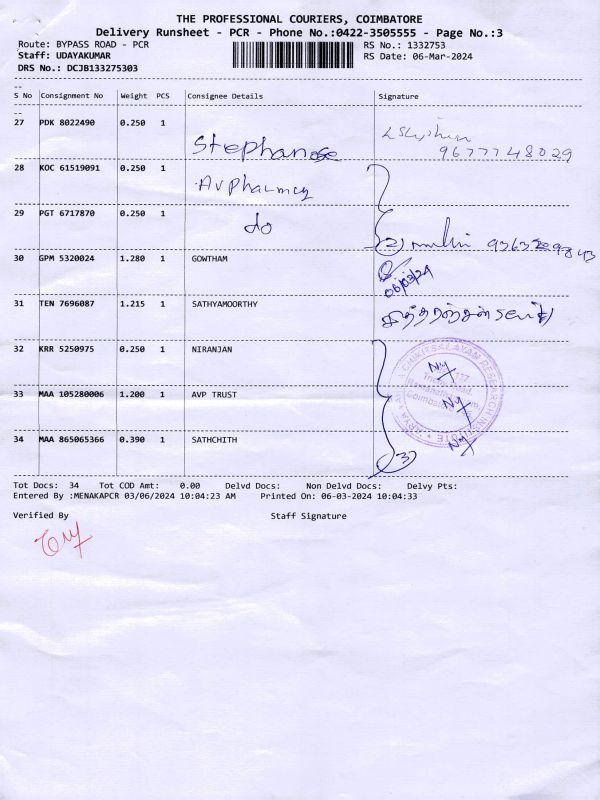 THE PROFESSIONAL COURIERS, COIMBATORE
Delivery Runsheet - PCR - Phone No.:0422-3505555 - Page No.:3
Route: BYPASS ROAD - PCR RS No.: 1332753
Staff: UDAYAKUMAR RS Date: 06-Mar-2024
DRS No.: DCJB133275303
S No Consignment No Weight PCS Consignee Details Signature
27 PDK 8022490 0.250 1
Stephanose 9677748029
28 KOC 61519091 0.250 1
Av Pharmacy
29 PGT 6717870 0.250 1
do
(2)
30 GPM 5320024 1.280 1 GOWTHAM
06/03/24
31 TEN 7696087 1.215 1 SATHYAMOORTHY
32 KRR 5250975 0.250 1 NIRANJAN
33 MAA 105280006 1.200 1 AVP TRUST
34 MAA 865065366 0.390 1 SATHCHITH
(3)
Tot Docs: 34 Tot COD Amt: 0.00 Delvd Docs: Non Delvd Docs: Delvy Pts:
Entered By :MENAKAPCR 03/06/2024 10:04:23 AM Printed On: 06-03-2024 10:04:33
Verified By Staff Signature